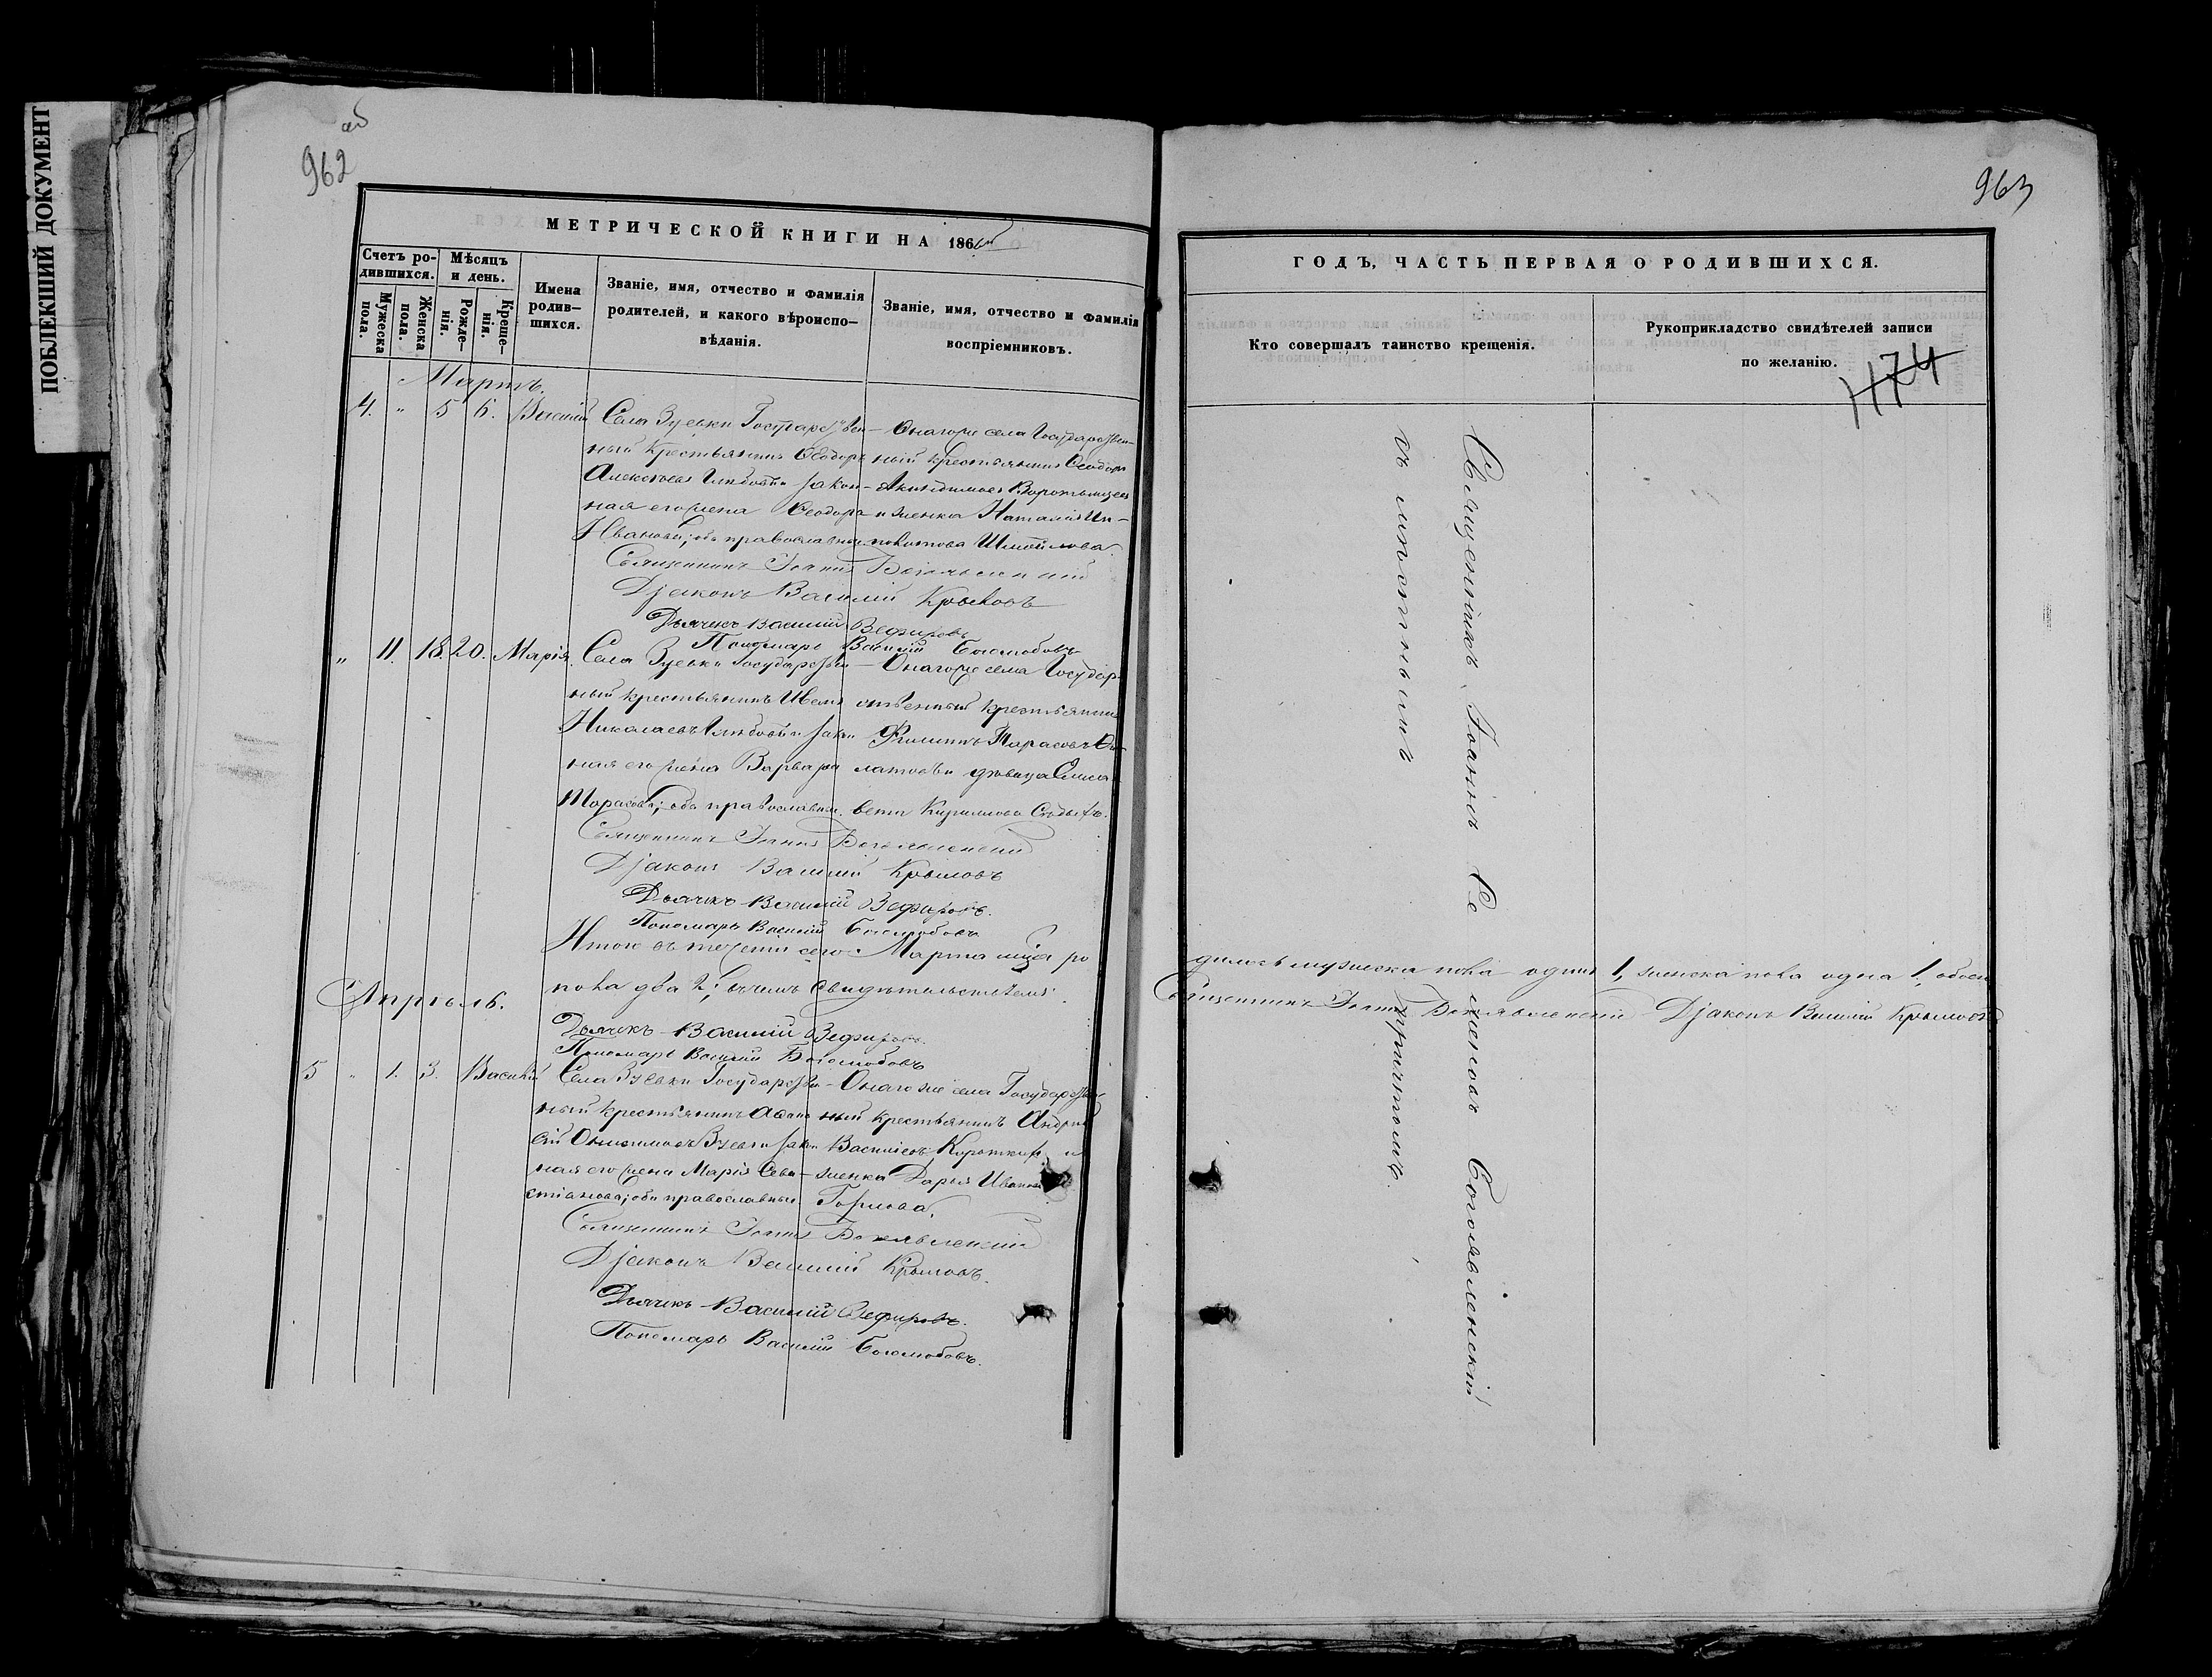 ПОБЛЕКШИЙ ДОКУМЕНТ
962
об
963
МЕТРИЧЕСКОЙ КНИГИ НА 186
Счетъ ро-
дившихся.
Мужеска
пола.
Женска
пола.
Мѣсяцъ
и день.
Рожде-
нія.
Креще-
нія.
Имена
родив-
шихся.
Званіе, имя, отчество и фамилія
родителей, и какого вѣроиспо-
вѣданія.
Званіе, имя, отчество и фамилія
воспріемниковъ.
Мартъ.
4. " 5 6. Василій
Села Зуевки Государствен-
ный крестьянинъ Ѳеодоръ
Алексѣевъ закон-
ная его жена Ѳеодора
Иванова; оба православные
Онагоже села Государствен-
ный крестьянинъ Ѳеодоръ
и женка Наталія
Священникъ Іоаннъ Богоявленскій
Діаконъ Василій Крыловъ
Дьячекъ Василій Зефировъ
Пономарь Василій Боголюбовъ
" 11. 18. 20. Марія
Села Зуевки Государствен-
ный крестьянинъ Иванъ
Николаевъ закон
ная его жена Варвара
Тарасова; оба православные.
Онагоже села Государ-
ственный крестьянинъ
Филиппъ Тарасовъ
дѣвица Елиса
вета Кирилова
Священникъ Іоаннъ Богоявленскій
Діаконъ Василій Крыловъ
Дьячекъ Василій Зефировъ.
Пономарь Василій Боголюбовъ
Итого въ теченіи сего Марта м‑ца ро
пола два 2; въ чемъ свидѣтельствуемъ:
Дьячекъ Василій Зефировъ.
Пономарь Василій Боголюбовъ
Апрѣль.
5 " 1. 3. Василій
Села Зуевки Государствен-
ный крестьянинъ
Онисимовъ Зуевъ и закон
ная его жена Марія Сева-
стіанова; оба православные
Онаго же села Государствен
ный крестьянинъ Андрей
Васильевъ Короткихъ и
женка Дарья Иванова
Горлова.
Священникъ Іоаннъ Богоявленскій
Діаконъ Василій Крыловъ.
Дьячекъ Василій Зефировъ.
Пономарь Василій Боголюбовъ.
ГОДЪ, ЧАСТЬ ПЕРВАЯ О РОДИВШИХСЯ.
Кто совершалъ таинство крещенія.
Рукоприкладство свидѣтелей записи
по желанію.
474
Священникъ Іоаннъ Се меновъ Богоявленскій
съ мѣстнымъ причтомъ.
дилось мужеска пола одинъ 1, женска пола одна 1, обоего
Священникъ Іоаннъ Богоявленскій Діаконъ Василій Крыловъ